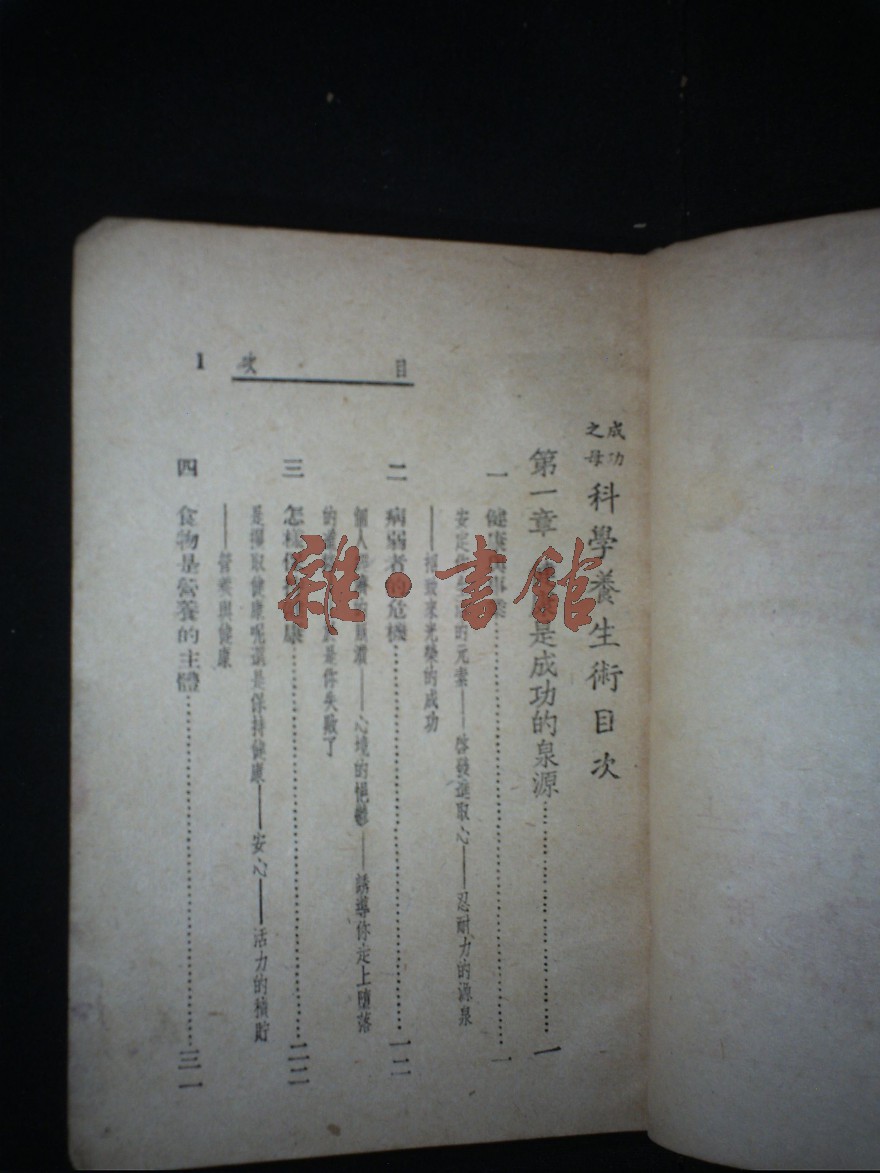 成功之母 科學養生術目次
第一章 是成功的泉源……一
一 健康……一
安定的元素——啓發進取心——忍耐力的源泉
——招致來光榮的成功
二 病弱者的危機……一二
個人——心境的悒鬱——誘導你走上墮落
的是你失敗了
三 怎樣保持健康……二二
是攝取健康呢還是保持健康——安心——活力的積貯
——營養與健康
四 食物是營養的主體……三一
目次
1
雜·書館